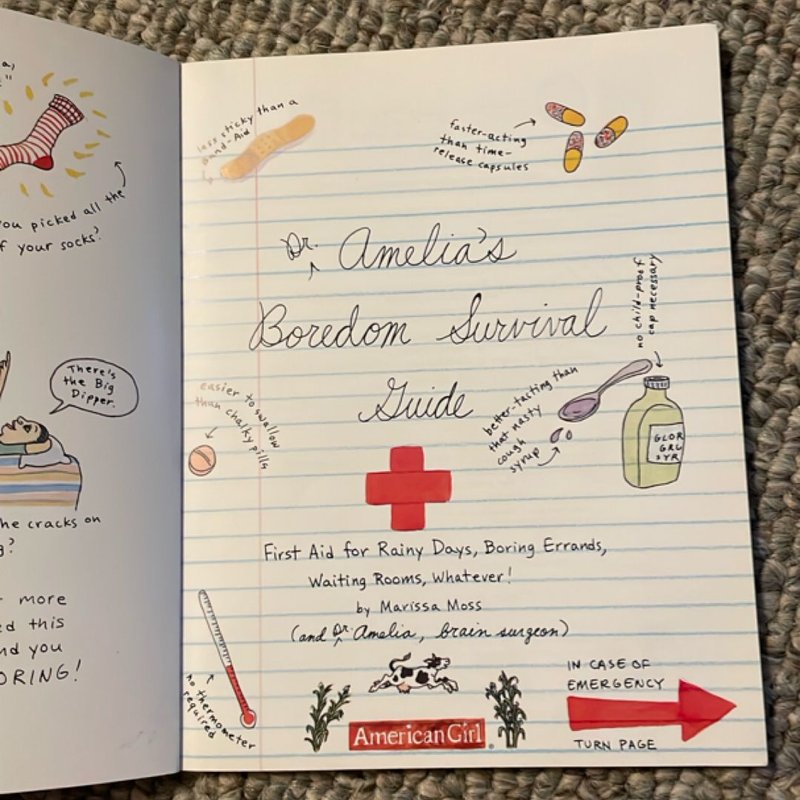 a,
"
you picked all the
f your socks?
There's
the Big
Dipper.
he cracks on
g?
more
ed this
nd you
ORING!
less sticky than a
Band-Aid
faster-acting
than time-
release capsules
Dr.
Amelia's
Boredom Survival
Guide
no child-proof
cap necessary
easier to swallow
than chalky pills
better-tasting than
that nasty
cough
syrup
GLOR
GRL
SYR
First Aid for Rainy Days, Boring Errands,
Waiting Rooms, Whatever!
by Marissa Moss
(and Dr. Amelia, brain surgeon)
no thermometer
required
American Girl®
IN CASE OF
EMERGENCY
TURN PAGE